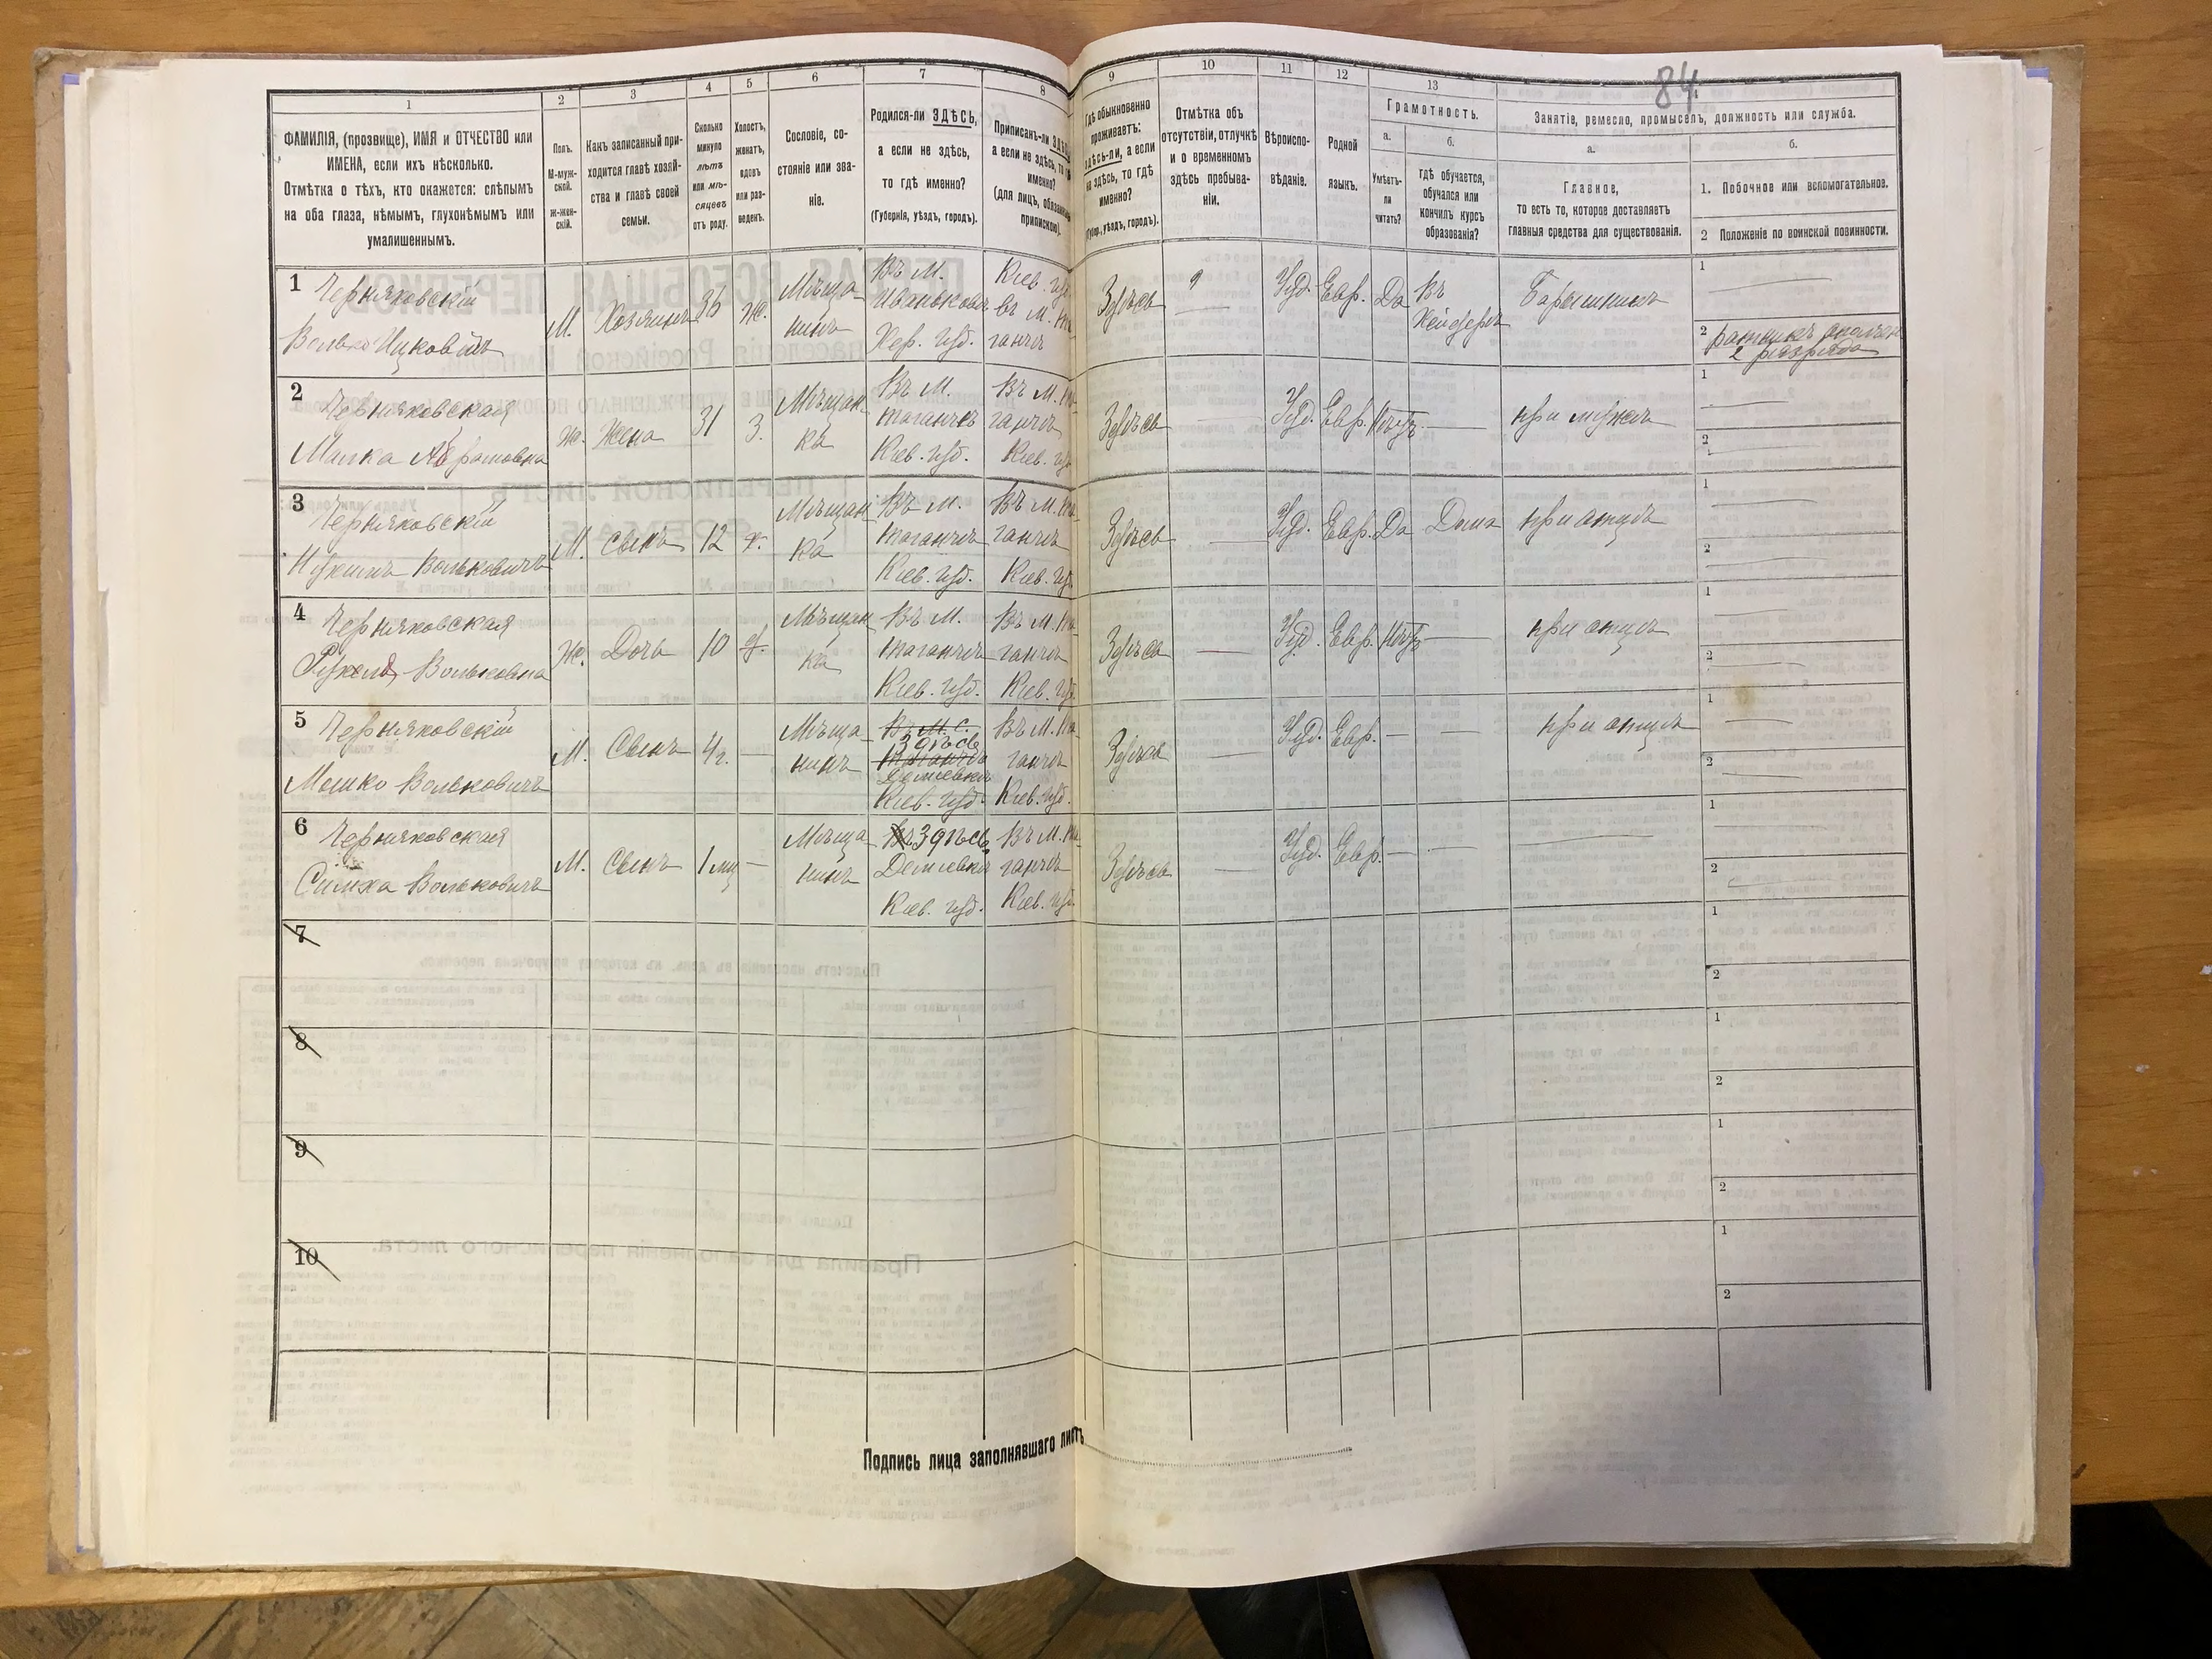 84.
1 2 3 4 5 6 7 8 9 10 11 12 13
ФАМИЛІЯ, (прозвище), ИМЯ и ОТЧЕСТВО или
ИМЕНА, если ихъ нѣсколько.
Отмѣтка о тѣхъ, кто окажется: слѣпымъ
на оба глаза, нѣмымъ, глухонѣмымъ или
умалишеннымъ.
Полъ.
М-муж-
ской.
ж-жен-
скій.
Какъ записанный при-
ходится главѣ хозяй-
ства и главѣ своей
семьи.
Сколько
минуло
лѣтъ
или мѣ-
сяцевъ
отъ роду.
Холостъ,
женатъ,
вдовъ
или раз-
веденъ.
Сословіе, со-
стояніе или зва-
ніе.
Родился-ли ЗДѢСЬ,
а если не здѣсь,
то гдѣ именно?
(Губернія, уѣздъ, городъ).
Приписанъ-ли
а если не здѣсь, то
именно?
(для лицъ,
припискою).
Гдѣ обыкновенно
проживаетъ:
здѣсь-ли, а если
не здѣсь, то гдѣ
именно?
(Губер., уѣздъ, городъ).
Отмѣтка объ
отсутствіи, отлучкѣ
и о временномъ
здѣсь пребыва-
ніи.
Вѣроиспо-
вѣданіе.
Родной
языкъ.
Грамотность.
а. б.
Умѣетъ-
ли
читать?
гдѣ обучается,
обучался или
кончилъ курсъ
образованія?
Занятіе, ремесло, промыселъ, должность или служба.
а. б.
Главное,
то есть то, которое доставляетъ
главныя средства для существованія.
1. Побочное или вспомогательное.
2 Положеніе по воинской повинности.
1 Черняковскій
Волько Ицковичъ
М. Хозяинъ 36 Ж.
Мѣща-
нинъ
Въ М.
Хер. губ.
Кіев. губ.
въ М.
ганчѣ
Здѣсь
Іуд. Евр. Да
Въ
Хейдерѣ
Барышникъ
1
2 ратникъ ополчен.
2 разряда
2 Черняковская
Малка Абрамовна
Ж. Жена 31 З.
Мѣщан-
ка
Въ М.
таганчѣ
Кіев. губ.
Въ М. та-
ганчѣ
Кіев. губ.
Здѣсь
Іуд. Евр. Нѣтъ —
при мужѣ
1
2
3 Черняковскій
Вольковичъ
М. Сынъ 12 х.
Мѣщан-
ка
Въ М.
таганчѣ
Кіев. губ.
Въ М. та-
ганчѣ
Кіев. губ.
Здѣсь
Іуд. Евр. Да Дома
при отцѣ
1
2
4 Черняковская
Вольковна
Ж. Дочь 10
Мѣщан-
ка
Въ М.
таганчѣ
Кіев. губ.
Въ М. та-
ганчѣ
Кіев. губ.
Здѣсь
Іуд. Евр. Нѣтъ —
при отцѣ
1
2
5 Черняковскій
Мошко Вольковичъ
М. Сынъ 4 г. —
Мѣща-
нинъ
Здѣсь
Демиевка
Кіев. губ.
Въ М. та-
ганчѣ
Кіев. губ.
Здѣсь
Іуд. Евр. — —
при отцѣ
1
2
6 Черняковская
Симха Вольковичъ
М. Сынъ 1 мц —
Мѣща-
нинъ
Здѣсь
Демиевка
Кіев. губ.
Въ М. та-
ганчѣ
Кіев. губ.
Здѣсь
Іуд. Евр. — —
1
2
7
1
2
8
1
2
9
1
2
10
1
2
Подпись лица заполнявшаго листъ